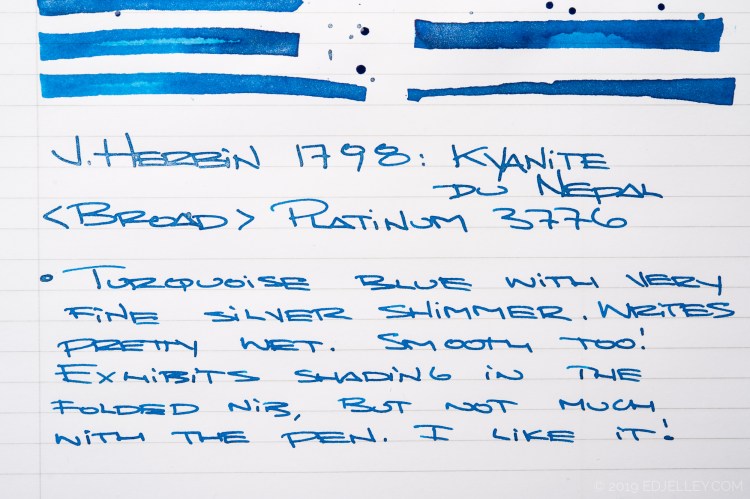 J. Herbin 1798: Kyanite
du Nepal
<Broad> Platinum 3776
• Turquoise blue with very
fine silver shimmer. Writes
pretty wet. Smooth too!
Exhibits shading in the
folded nib, but not much
with the pen. I like it!
© 2019 EDJELLEY.COM